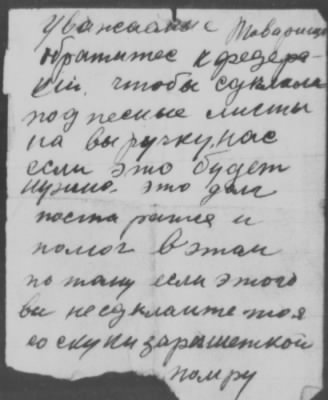 Уважааные Товарищ
обратитес к федера-
ки. чтобы сдклали
подпесные листы
на выручку, нас
если это будет
нужно. это для
поста райся и
помог в этом
по таму если этого
вы не сдклаите то я
со скуки зарышеткой
помру